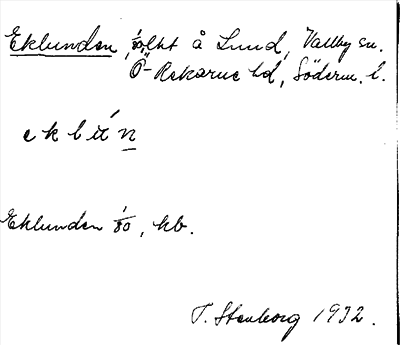 Eklunden 1/80, lht å Lund, Vallby sn.
Ö-Rekarne hd, Söderm. l.
eklún
Eklunden 1/80, kb.
T. Stenborg 1932.